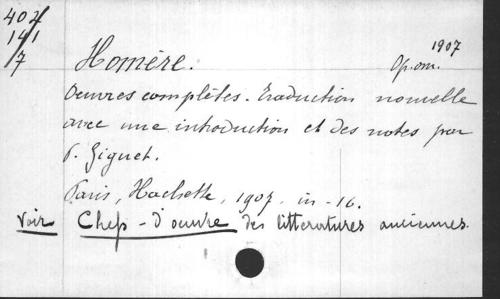 402
141
7
1907
Homère.
Op. om.
Oeuvres complètes. Traduction nouvelle
avec une introduction et des notes par
P. Giguet.
Paris, Hachette, 1907, in-16.
Voir Chefs-d'oeuvre des littératures anciennes.